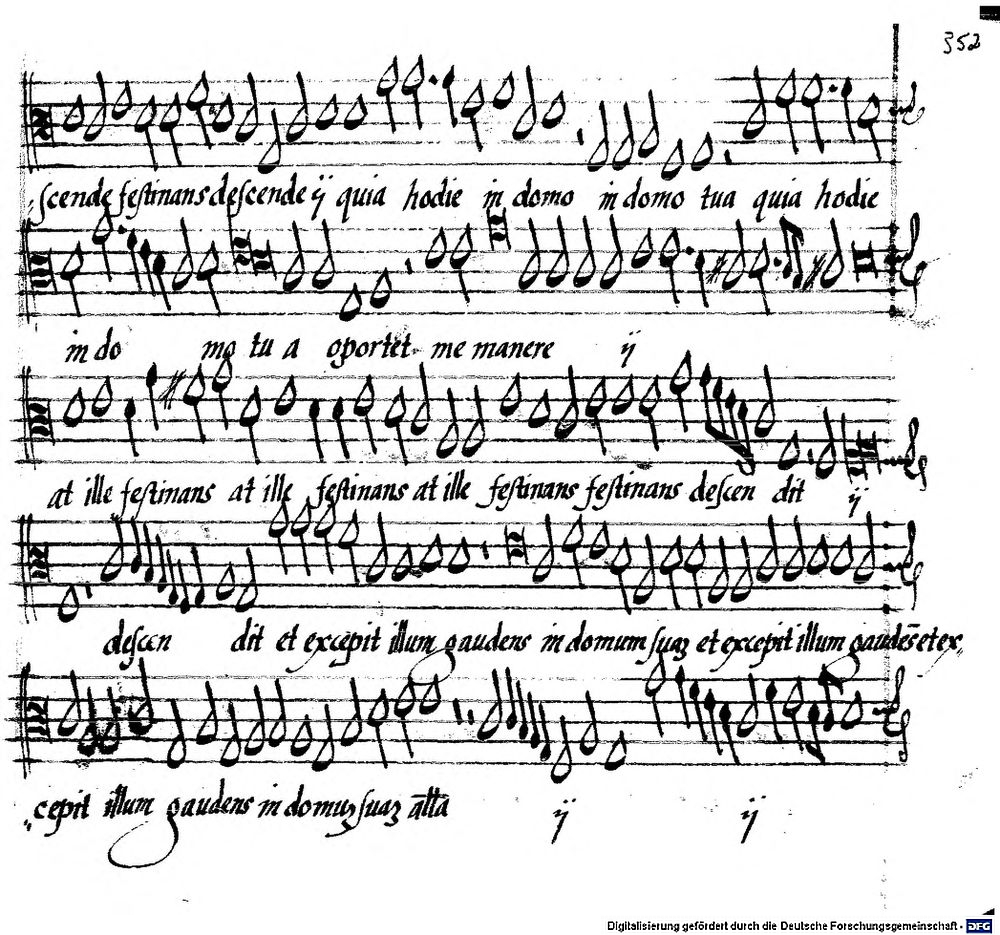 352
scende festinans descende ij quia hodie in domo in domo tua quia hodie
in do mo tu a oportet me manere ij
at ille festinans at ille festinans at ille festinans festinans descen dit ij
descen dit et excepit illum gaudens in domum suaʒ et excepit illum gaudēs et ex
cepit illum gaudens in domuʒ suaʒ ij ij
Digitalisierung gefördert durch die Deutsche Forschungsgemeinschaft - DFG